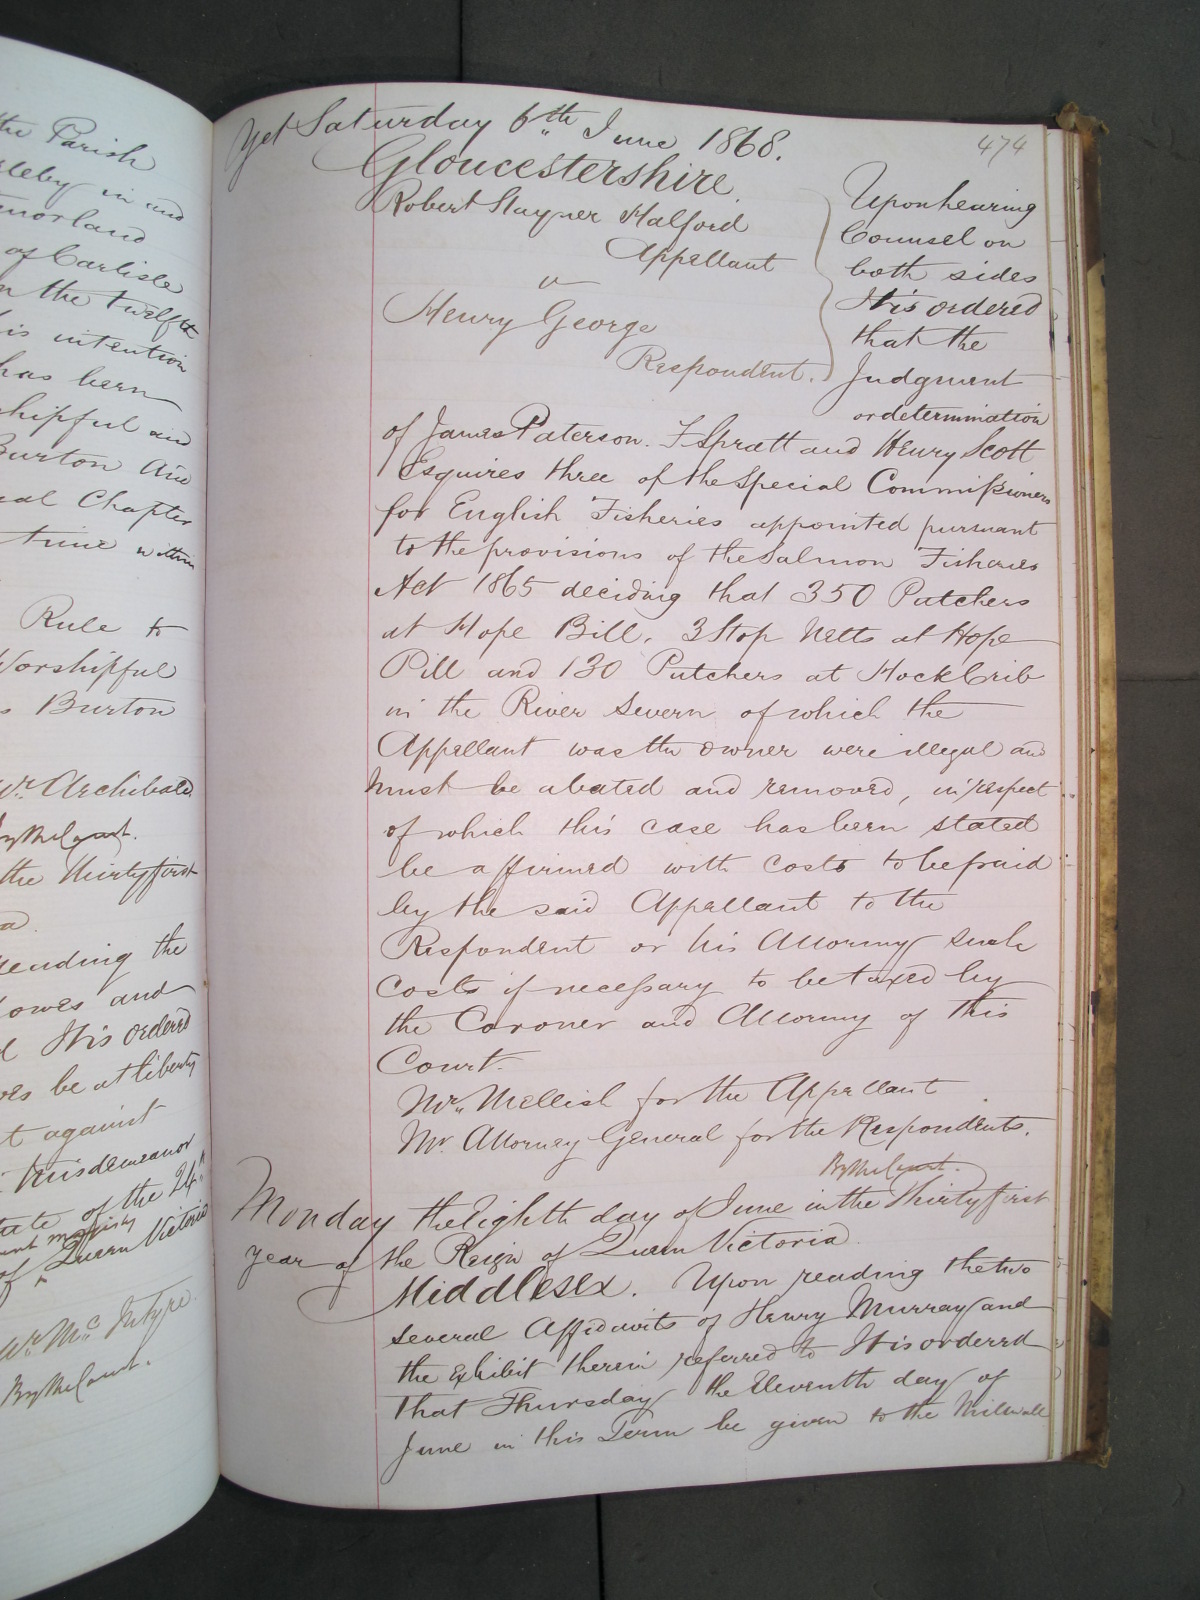 the Parish
in and
of Carlisle
the twelfth
his intention
has been
and
Burton and
Chapter
time within
Rule to
Worshipful
Burton
Mr. Archibald
By the Court.
the Thirty first
reading the
and
It is ordered
be at liberty
against
misdemeanor
of the 24th
of Queen Victoria
Mr. McIntyre.
By the Court.
474
Yet Saturday 6th June 1868.
Gloucestershire.
Robert Stayner Halford
Appellant
v
Henry George
Respondent.
Upon hearing
Counsel on
both sides
It is ordered
that the
Judgment
or determination
of James Paterson. F Spratt and Henry Scott
Esquires three of the Special Commissioners
for English Fisheries appointed pursuant
to the provisions of the Salmon Fisheries
Act 1865 deciding that 350 Putchers
at Hope Bill. 3 Stop Netts at Hope
Pill and 130 Putchers at Hock Crib
in the River Severn of which the
Appellant was the owner were illegal and
must be abated and removed, in respect
of which this case has been stated
be affirmed with costs to be paid
by the said Appellant to the
Respondent or his Attorney such
costs if necessary to be taxed by
the Coroner and Attorney of this
Court.
Mr. Mellish for the Appellant
Mr. Attorney General for the Respondents.
By the Court.
Monday the Eighth day of June in the Thirty first
year of the Reign of Queen Victoria
Middlesex. Upon reading the two
several Affidavits of Henry Murray and
the exhibit therein referred to It is ordered
that Thursday the Eleventh day of
June in this Term be given to the Millwall